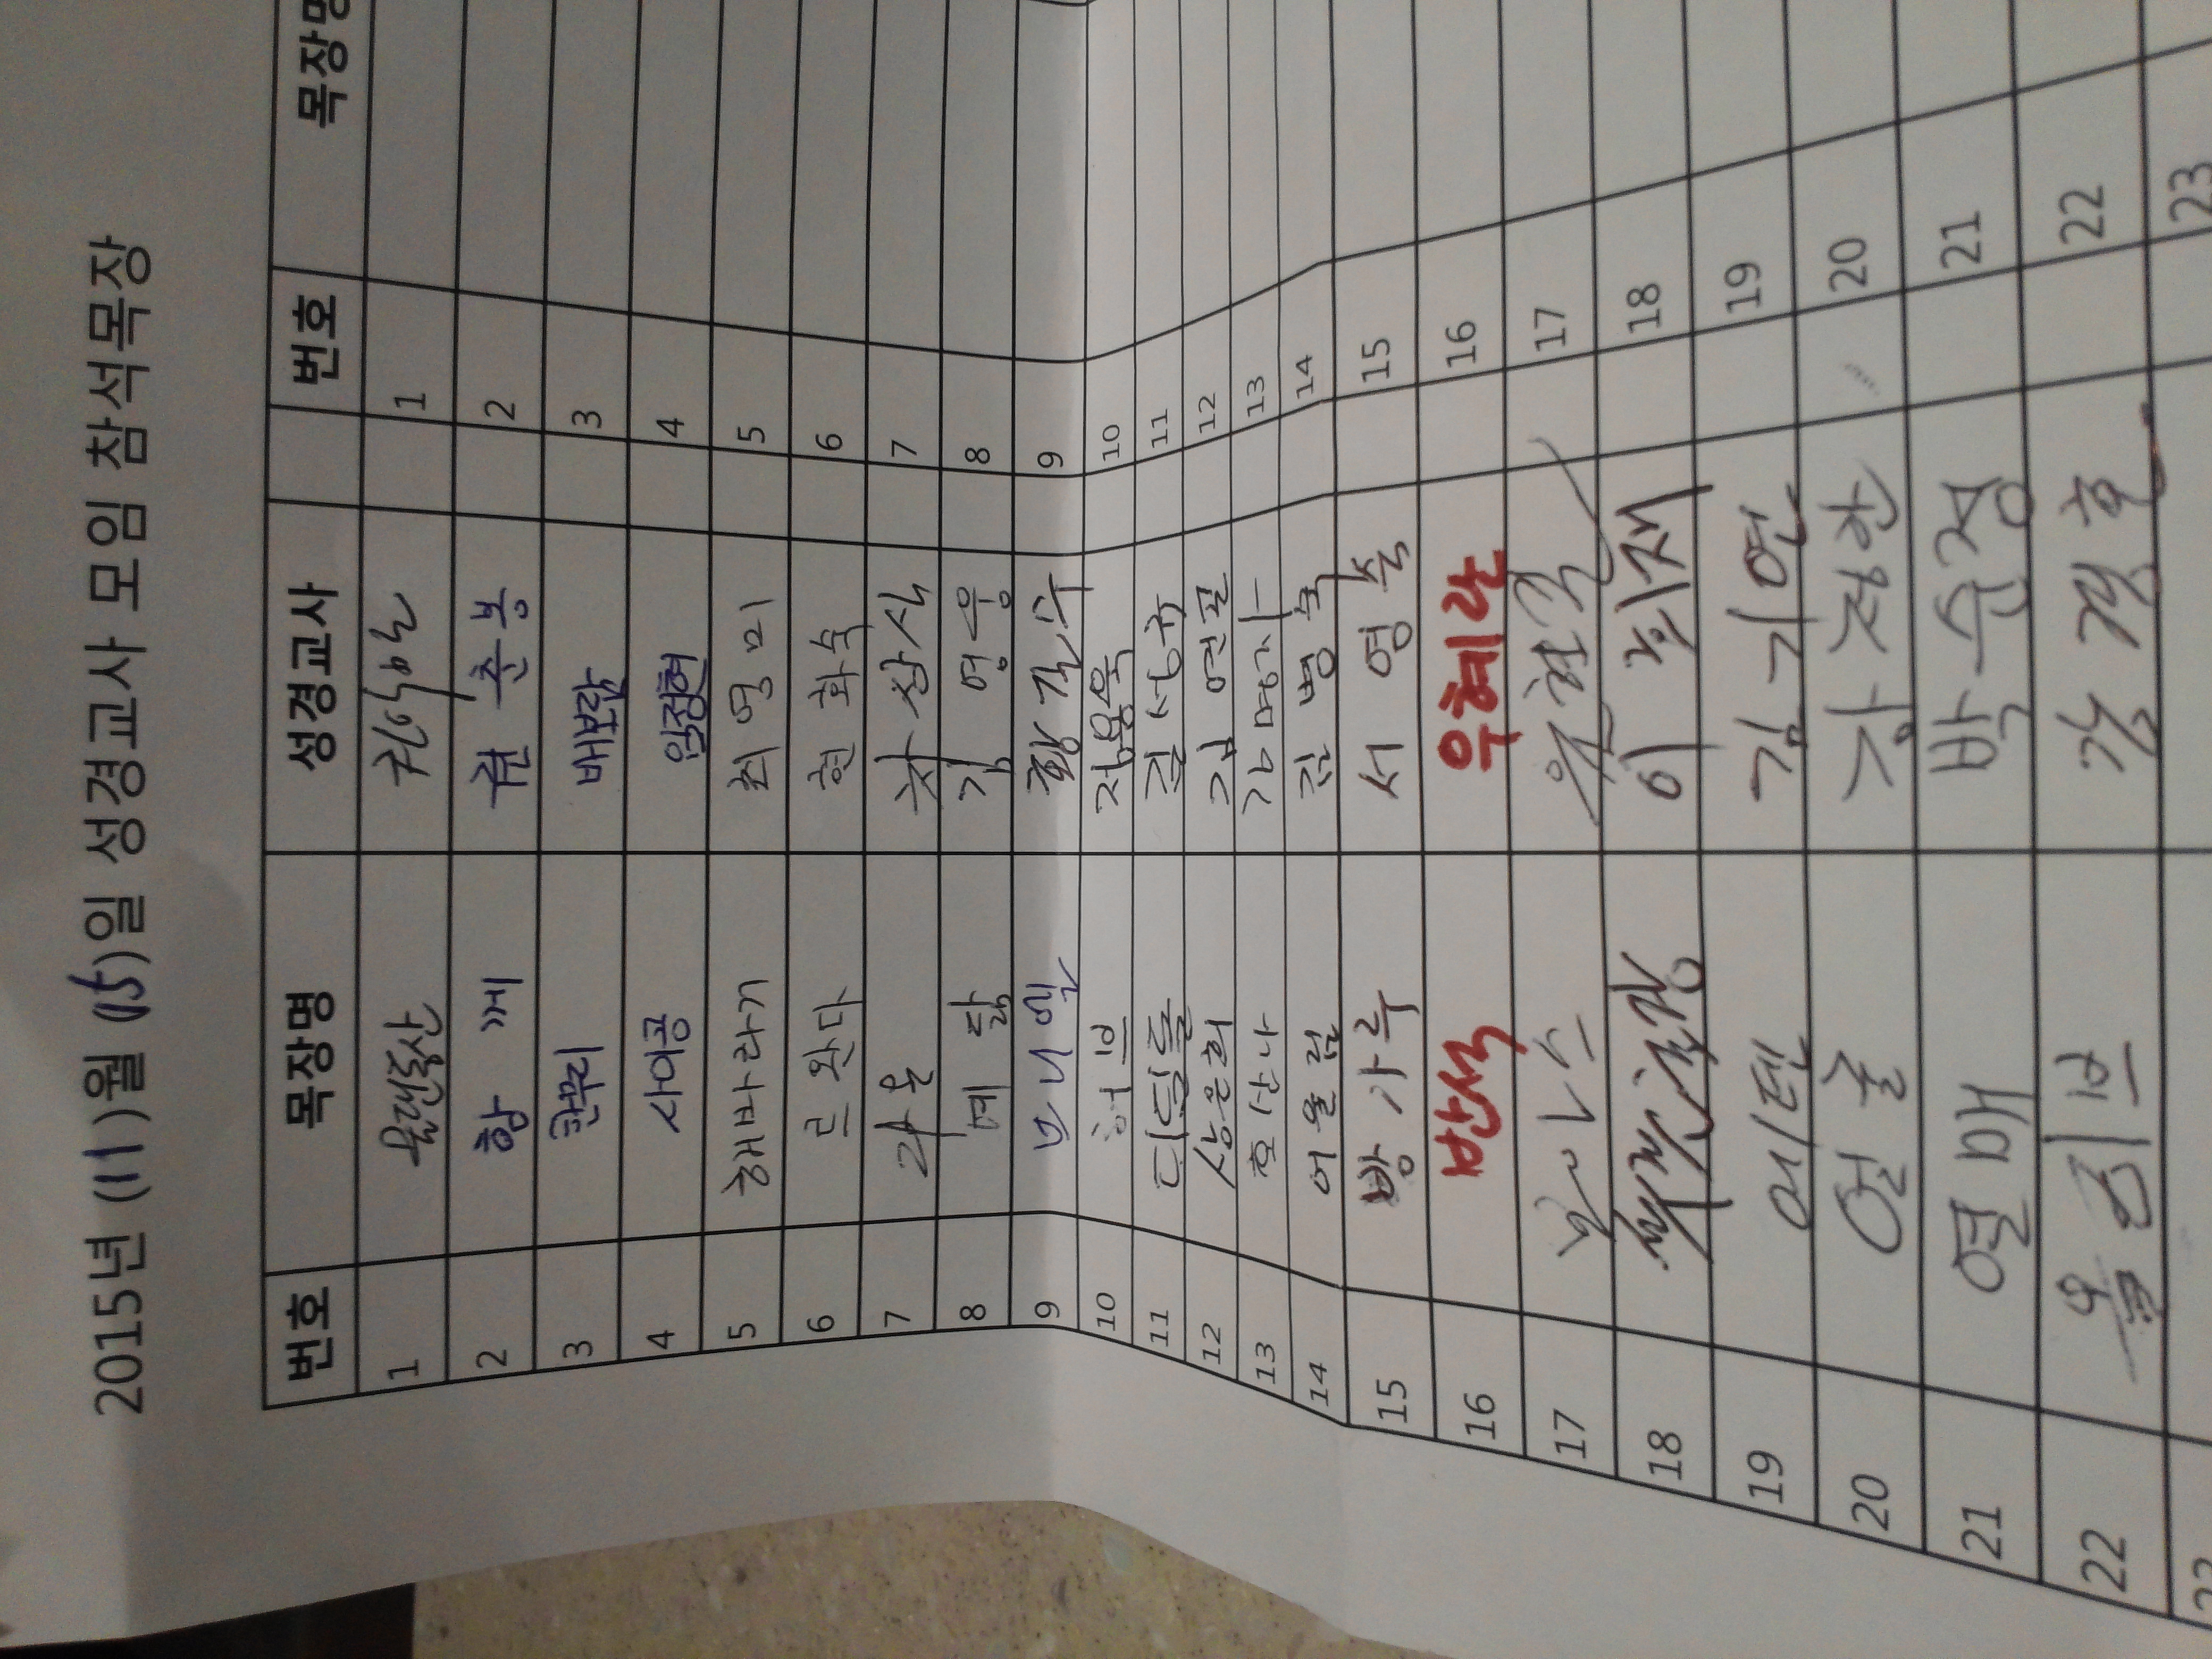 2015년 (11)월 (15)일 성경교사 모임 참석목장
번호 목장명 성경교사 번호 목장명
1 물댄동산 1
2 함께 권춘봉 2
3 한무리 배보람 3
4 사이공 임정현 4
5 해바라기 최영미 5
6 르완다 현화숙 6
7 라온 차상식 7
8 예닮 김영웅 8
9 브니엘 황길수 9
10 허브 정용욱 10
11 디딤돌 김성규 11
12 상은희 김연필 12
13 호산나 강명자 13
14 어울림 김병숙 14
15 방가루 서영숙 15
16 반석 우혜란 16
17 보아스 윤현길 17
18 이희재 18
19 에덴 김기연 19
20 얼굴 강정한 20
21 열매 박순정 21
22 올리브 강경호 22
23 23